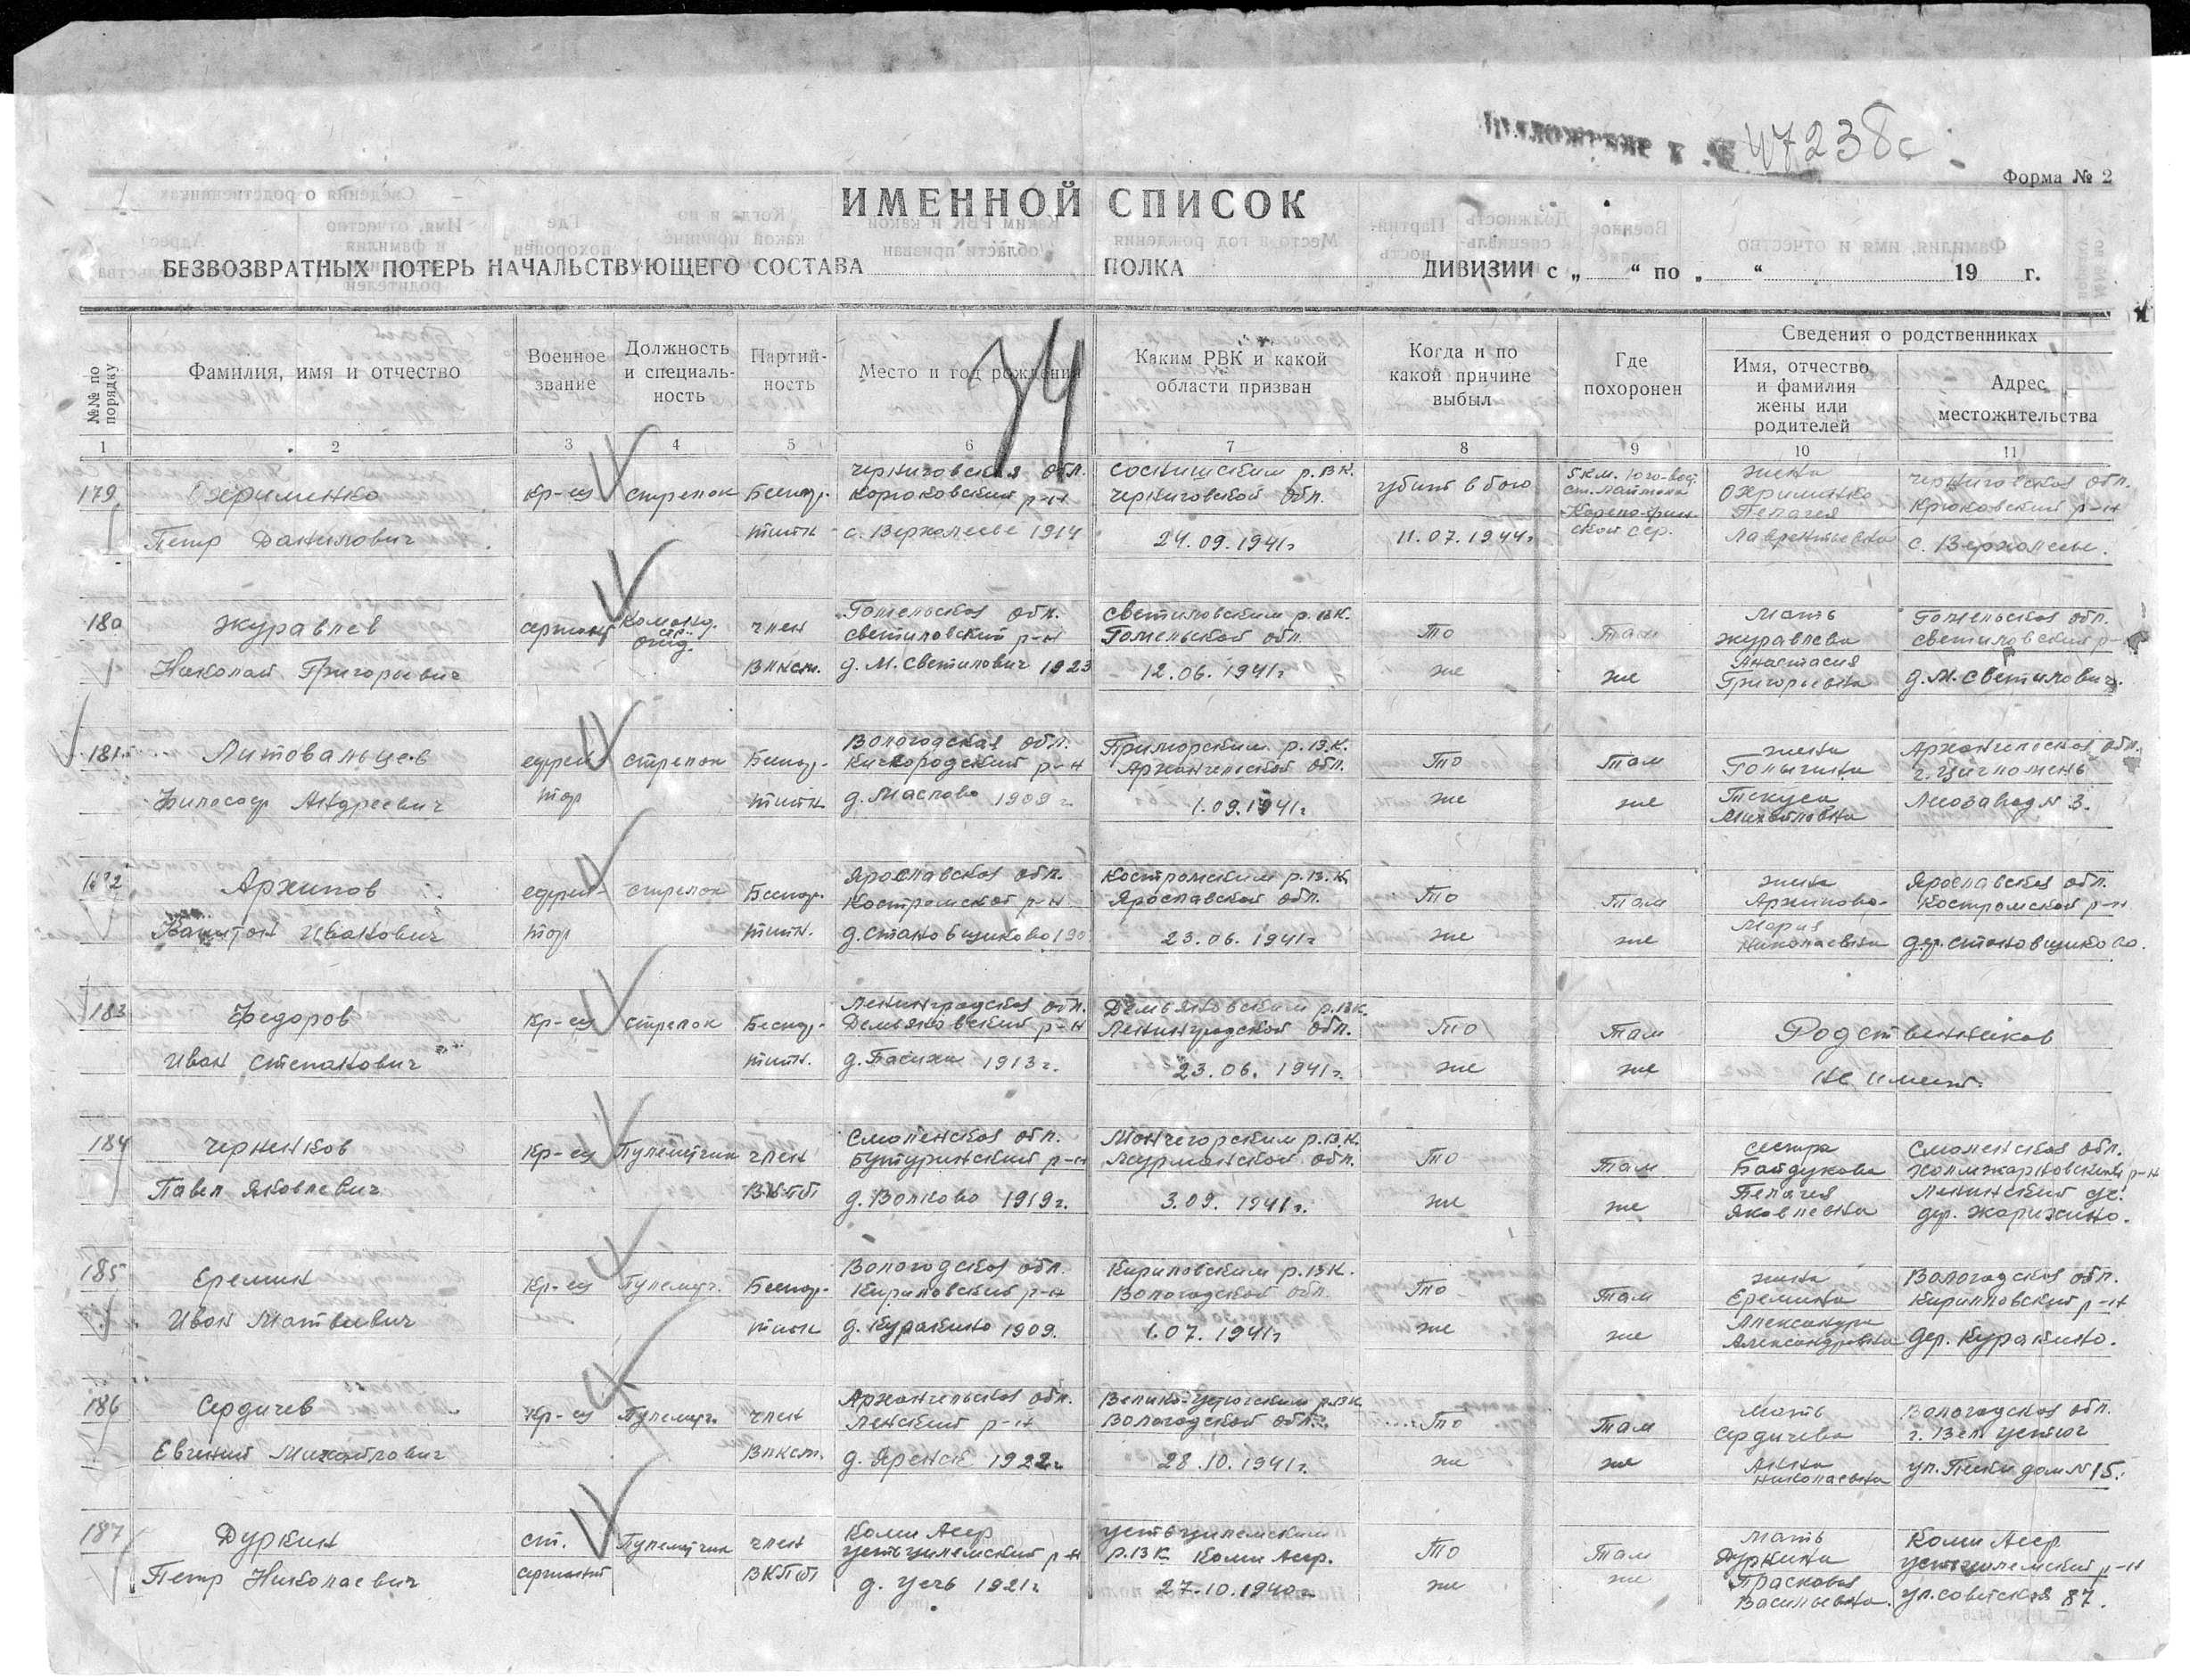 47238с
Форма № 2
ИМЕННОЙ СПИСОК
БЕЗВОЗВРАТНЫХ ПОТЕРЬ НАЧАЛЬСТВУЮЩЕГО СОСТАВА ПОЛКА ДИВИЗИИ с „ “ по „ “ 19 г.
№№ по порядку
Фамилия, имя и отчество
Военное звание
Должность и специальность
Партийность
Место и год рождения
Каким РВК и какой области призван
Когда и по какой причине выбыл
Где похоронен
Сведения о родственниках
Имя, отчество и фамилия жены или родителей
Адрес местожительства
1 2 3 4 5 6 7 8 9 10 11
Черниговская обл. Соснитским р.в.к. 5 км. юго-вост. жена Черниговская обл.
179 Охрименко кр-ец стрелок Беспар- Корюковский р-н Черниговской обл. убит в бою Охрименко Крюковский р-н
Петр Данилович тийн с. Верхолесье 1914 24.09.1941г 11.07.1944г ской сср. Пелагея Лаврентьевна с. Верхолесье.
180 Журавлев сержант Команд. отд. член Гомельская обл. Светиловским р.в.к. То Там мать Гомельская обл.
Светиловский р-н Гомельской обл. Журавлева Светиловский р-н
Николай Григорьевич Влксм. д. М. Светилович 1923 12.06.1941г же же Анастасия Григорьевна д. М. Светилович.
181 Литовальцев ефрей- стрелок Беспар- Вологодская обл. Приморским р.в.к. То Там жена Архангельская обл.
Архангельской обл.
Андреевич тор тийн д. Маслово 1909 г 1.09.1941г же же Михайловна Лесозавод N 3.
182 Архипов ефрей- стрелок Беспар- Ярославская обл. Костромским р.в.к. То Там жена Ярославская обл.
Костромской р-н Ярославской обл. Архипова Костромской р-н
Капитон Иванович тор тийн. д. Становщиково 23.06.1941г же же Мария Николаевна дер. Становщиково.
183 Федоров кр-ец стрелок Беспар- Ленинградская обл. Демьяновским р.в.к. То Там Родственников
Демьяновский р-н Ленинградской обл.
Иван Степанович тийн. 1913г. 23.06.1941г. же же не имеет.
184 Черненков кр-ец Пулеметчик член Смоленская обл. Мончегорским р.в.к. То Там сестра Смоленская обл.
Батуринский р-н Мурманской обл. Байдукова Холмжарковский р-н
Павел Яковлевич ВКПб д. Волково 1919г. 3.09.1941г. же же Пелагея Яковлевна Ленинский с/с. дер. Жарихино.
185 Еремин кр-ец Пулемётч. Беспар- Вологодская обл. Кириловским р.в.к. То Там жена Вологодская обл.
Кириловский р-н Вологодской обл. Еремина Кирилловский р-н
Иван Матвеевич тийн д. Куракино 1909. 1.07.1941г же же Александра Александровна дер. Куракино.
186 Сердичев кр-ец Пулеметч. член Архангельская обл. Велико-Устюгским р.в.к То Там мать Вологодская обл.
Ленский р-н Вологодской обл. Сердичева г. Вел. Устюг
Евгений Михайлович Влксм. д. Яренск 1922г 28.10.1941г. же же Анна Николаевна ул. Пески дом N 15.
187 Дуркин ст. Пулеметчик член Коми Асср Устьцилемским То Там мать Коми Асср
Устьцилемский р-н р.в.к Коми Асср. Дуркина Устьцилемский р-н
Петр Николаевич сержант ВКПб 1921г 27.10.1940г же же Прасковья Васильевна. ул. Советская 87.